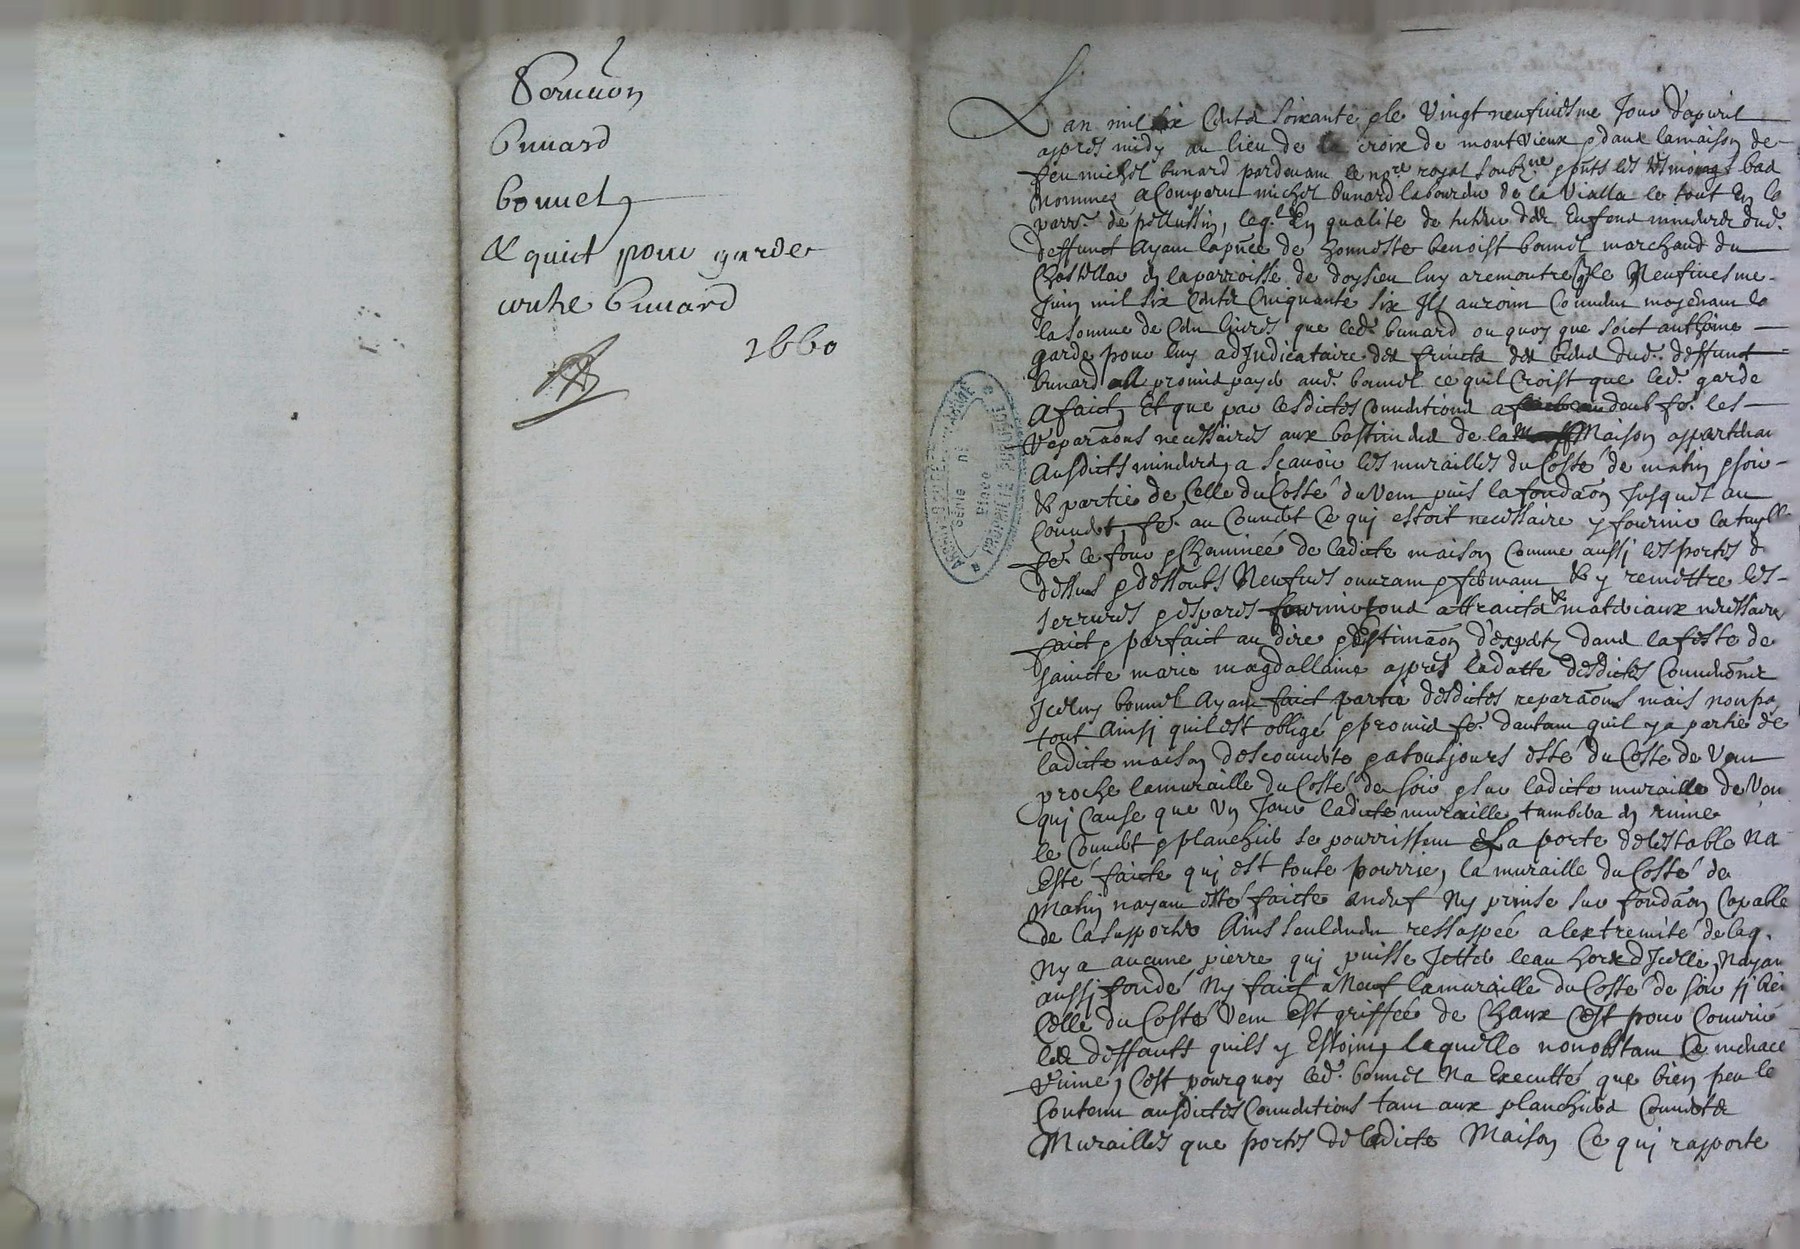 Bunard
bonnel
& quict pour garde
contre Bunard
1660
Lan mil six Centz soixante & le Vingt neufviesme Jour dapvril
apres midy au lieu de la croix de montvieux & dans la maison de
feu michel bunard pardevant le nore royal soubz.ne & pnts les tesmoings bas
nommez a Comparu michel bunard laboureur de la Vialla le tout En la
parr. de pellussin, leql En qualité de tuteur des Enfans mineurs dud.
deffunct Ayant la pnce de honneste benoist bonnel marchand du
Chastellar en la parroisse de doysieu luy a remontre q le Neufviesme
Juin mil six Centz Cinquante six Ils auroint Convenu moyenant la
la somme de Cent livres que led. bunard ou quoy que soict anthoine
garde pour luy adjudicataire des fruicts des biens dud. deffunct
bunard promis payer aud. bonnel ce quil Croist que led. garde
A faict, Et que par lesdictes Conventions fe. les
reparaons necessaires aux bastimens de la Maison apartenan
Ausdicts mineurs, a scavoir les murailles du Costé de matin & soir
& partie de Celle du Costé du Vent puis la fondaon Jusques au
Couvert, fe. au Couvert Ce qui estoit necessaire y fournir la tuylle
fe. le four & Cheminée de ladicte maison Comme aussi les portes de
dessus & dessoubs Neufves ouvrant & fermant & y remettre les
serrures & espares fournir tous attraicts & materiaux necessaires
faict & parfaict au dire & Estimaon dexpertz dans la feste de
saincte marie magdallaine apres la datte desdictes Conventions
Icelluy bonnel Ayant faict partie desdictes reparaons mais non pas
tout Ainsi quil est obligé & promis fe. dautant quil y a partie de
ladicte maison descouverte & a tousjours esté du Costé de Vent
proche la muraille du Costé de soir & sur ladicte muraille de Vent
qui Cause que Un Jour ladicte muraille tumbera en ruine
le Couvert & plancher se pourrissent & La porte de lestable Na
Esté faicte qui est toute pourrie, la muraille du Costé de
Matin nayant esté faicte a neuf Ny prinse sur fondaon Capable
de la supporter Ains seulement ressappée a lextremité de laq.
Ny a aucune pierre qui puisse Jetter leau hors dIcelle, Nayant
aussi fondé Ny faict a Neuf la muraille du Costé de soir si bien
Celle du Costé Vent Est griffée de Chaux Cest pour Couvrir
les deffauts quils y Estoint, laquelle nonobstant Ce menace
ruine, Cest pourquoy led. bonnel Na Executté que bien peu le
Contenu ausdictes Conventions tant aux planchers Couvert &
Murailles que portes de ladicte Maison Ce qui rapporte